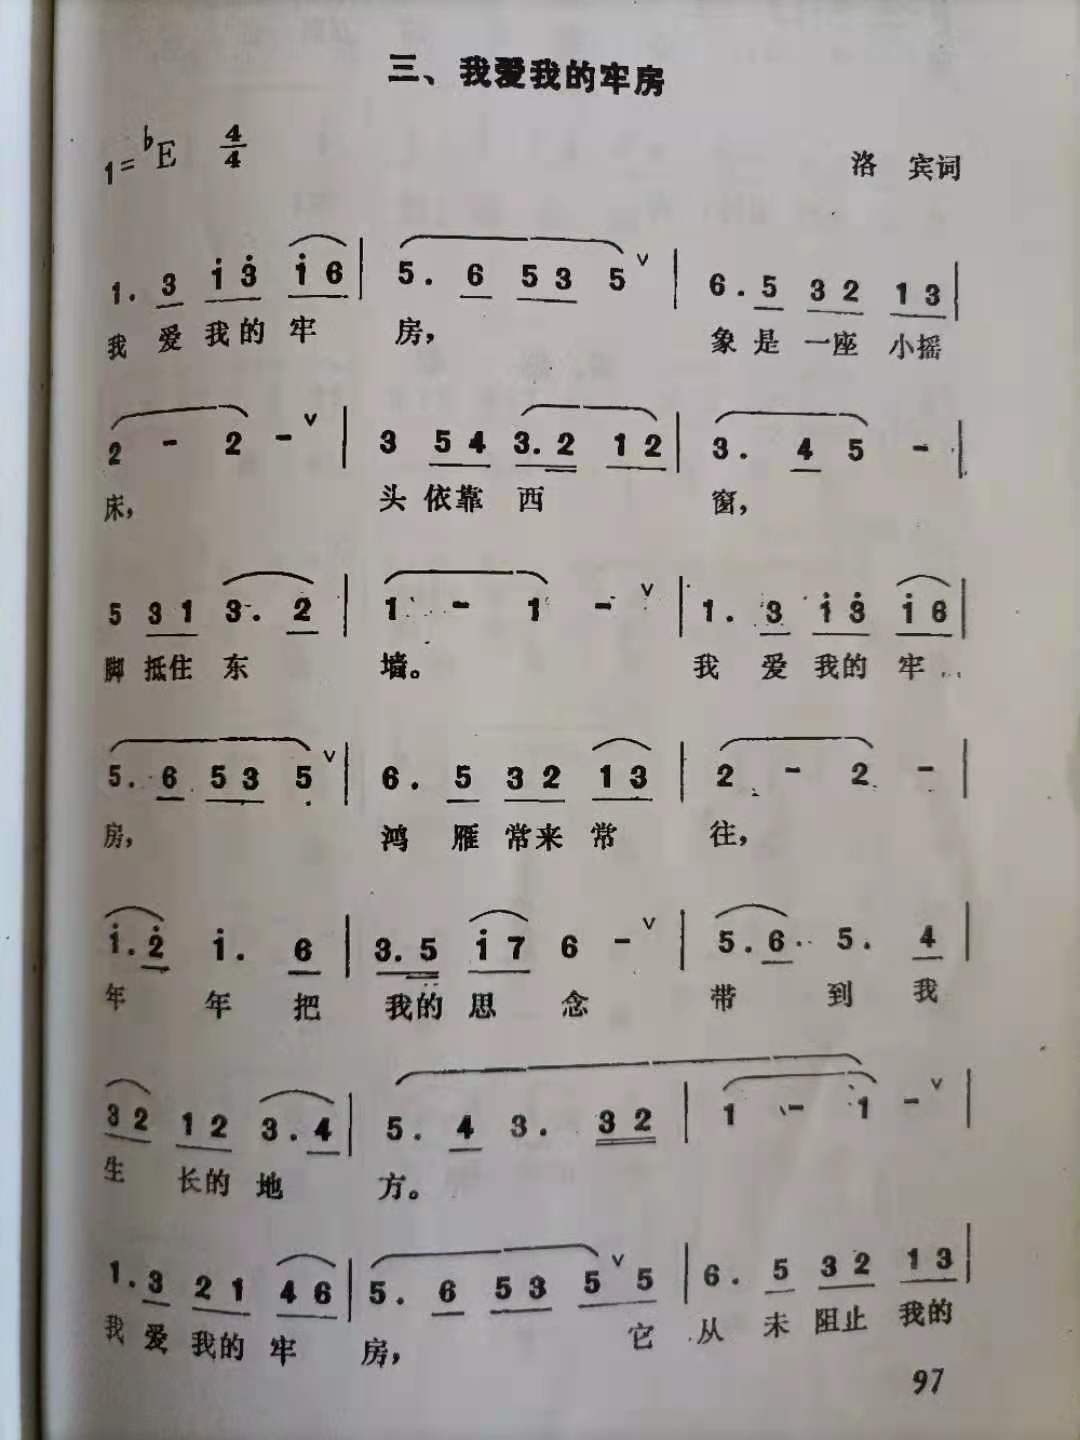 三、我爱我的牢房
1=♭E 4/4
洛 宾词
1. 3 i̇ 3̇ i̇ 6 | 5. 6 5 3 5 ∨ | 6. 5 3 2 1 3 |
我 爱 我的 牢 房， 象 是 一座 小摇
2 - 2 - ∨ | 3 5 4 3. 2 1 2 | 3. 4 5 - |
床， 头 依靠 西 窗，
5 3 1 3. 2 | 1 - 1 - ∨ | 1. 3 i̇ 3̇ i̇ 6 |
脚 抵住 东 墙。 我 爱 我的 牢
5. 6 5 3 5 ∨ | 6. 5 3 2 1 3 | 2 - 2 - |
房， 鸿 雁 常来 常 往，
i̇. 2̇ i̇. 6 | 3. 5 i̇ 7 6 - ∨ | 5. 6 5. 4 |
年 年 把 我的 思 念 带 到 我
3 2 1 2 3. 4 | 5. 4 3. 3 2 | 1 - 1 - ∨ |
生 长的 地 方。
1. 3 2 1 4 6 | 5. 6 5 3 5 ∨ 5 | 6. 5 3 2 1 3 |
我 爱 我的 牢 房， 它 从 未 阻止 我的
97